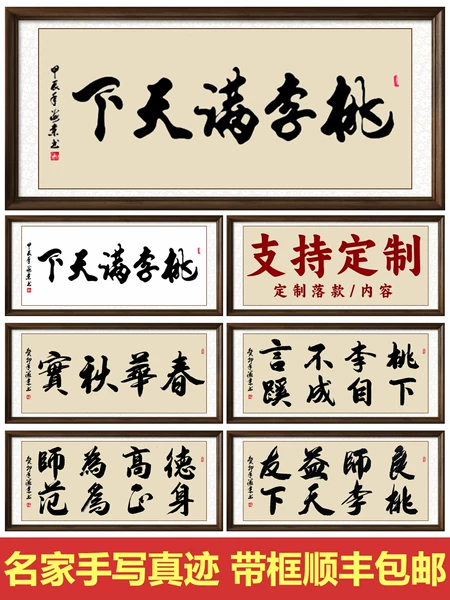 桃李满天下
甲辰年
桃李满天下
甲辰年
支持定制
定制落款/内容
春華秋實
癸卯年
桃李不言
下自成蹊
癸卯年
德高為师
身正為范
癸卯年
良师益友
桃李天下
癸卯年
名家手写真迹 带框顺丰包邮